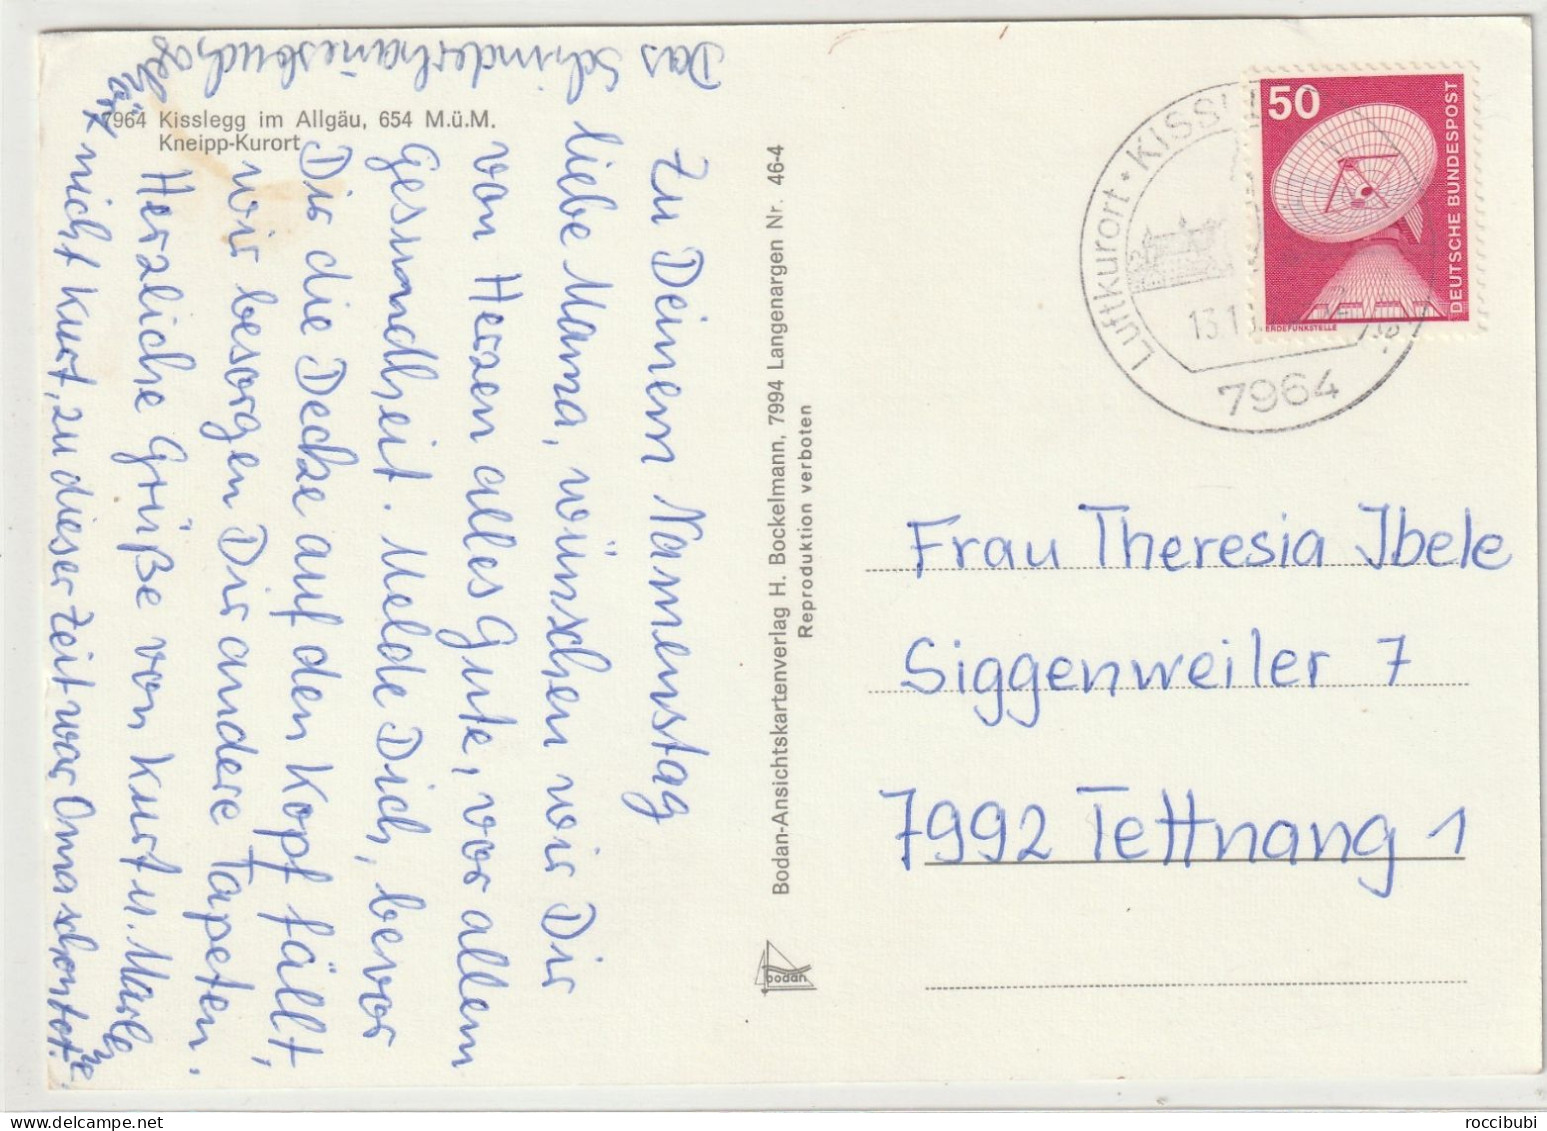 7964 Kisslegg im Allgäu, 654 M.ü.M.
Kneipp-Kurort
Zu Deinem Namenstag
liebe Mama, wünschen wir Dir
von Herzen alles Gute, vor allem
Gesundheit. Melde Dich, bevor
Dir die Decke auf den Kopf fällt,
wir besorgen Dir andere Tapeten.
Herzliche Grüße von Kurt u. Marlene
nicht Kurt, zu dieser Zeit war Oma schon tot.
Das Schinderhannesbuch
Bodan-Ansichtskartenverlag H. Bockelmann, 7994 Langenargen Nr. 46-4
Reproduktion verboten
bodan
Luftkurort · KISSL
13.1
7964
50
DEUTSCHE BUNDESPOST
ERDEFUNKSTELLE
Frau Theresia Ibele
Siggenweiler 7
7992 Tettnang 1
roccibubi